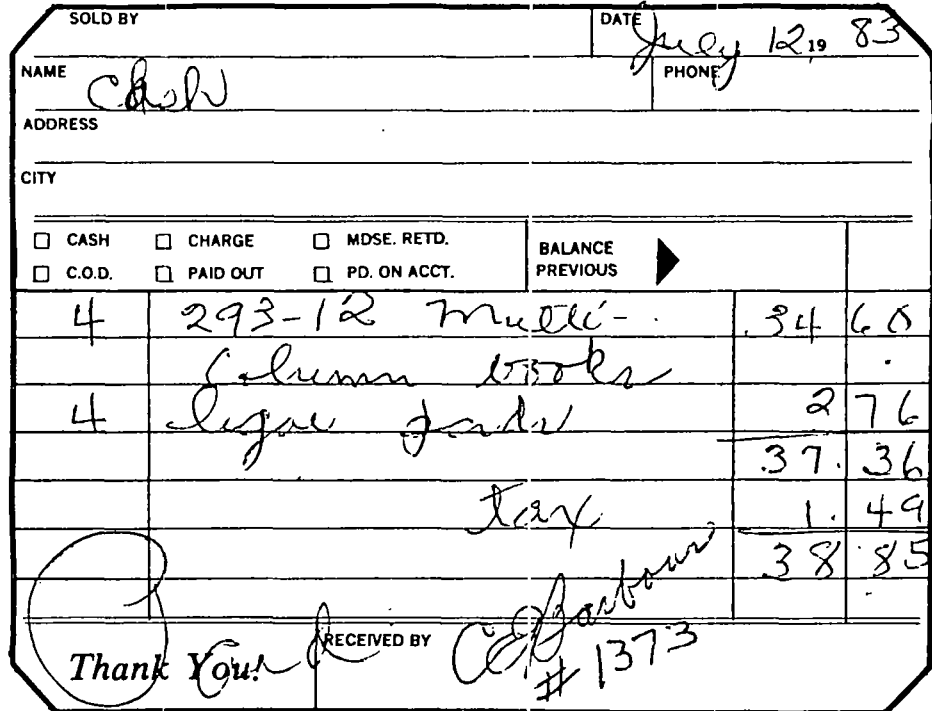 SOLD BY DATE July 12, 19 83
NAME Cash PHONE
ADDRESS
CITY
☐ CASH ☐ CHARGE ☐ MDSE. RETD. BALANCE
☐ C.O.D. ☐ PAID OUT ☐ PD. ON ACCT. PREVIOUS
4 293-12 Multi- 34 60
Column books
4 legal pads 2 76
37. 36
tax 1. 49
38 85
RECEIVED BY C E Barbour
Thank You! # 1373